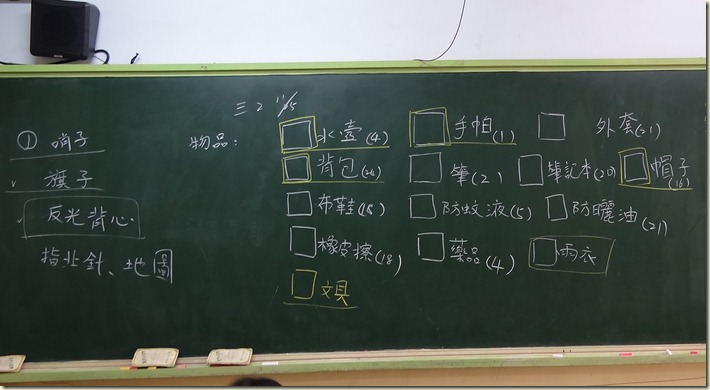 三 2 11/25
① 哨子
旗子
反光背心.
指北針、地圖
物品:
□水壺(4) □手帕(1) □外套(21)
□背包(24) □筆(2) □筆記本(20) □帽子(16)
□布鞋(18) □防蚊液(5) □防曬油(21)
□橡皮擦(18) □藥品(4) □雨衣
□文具